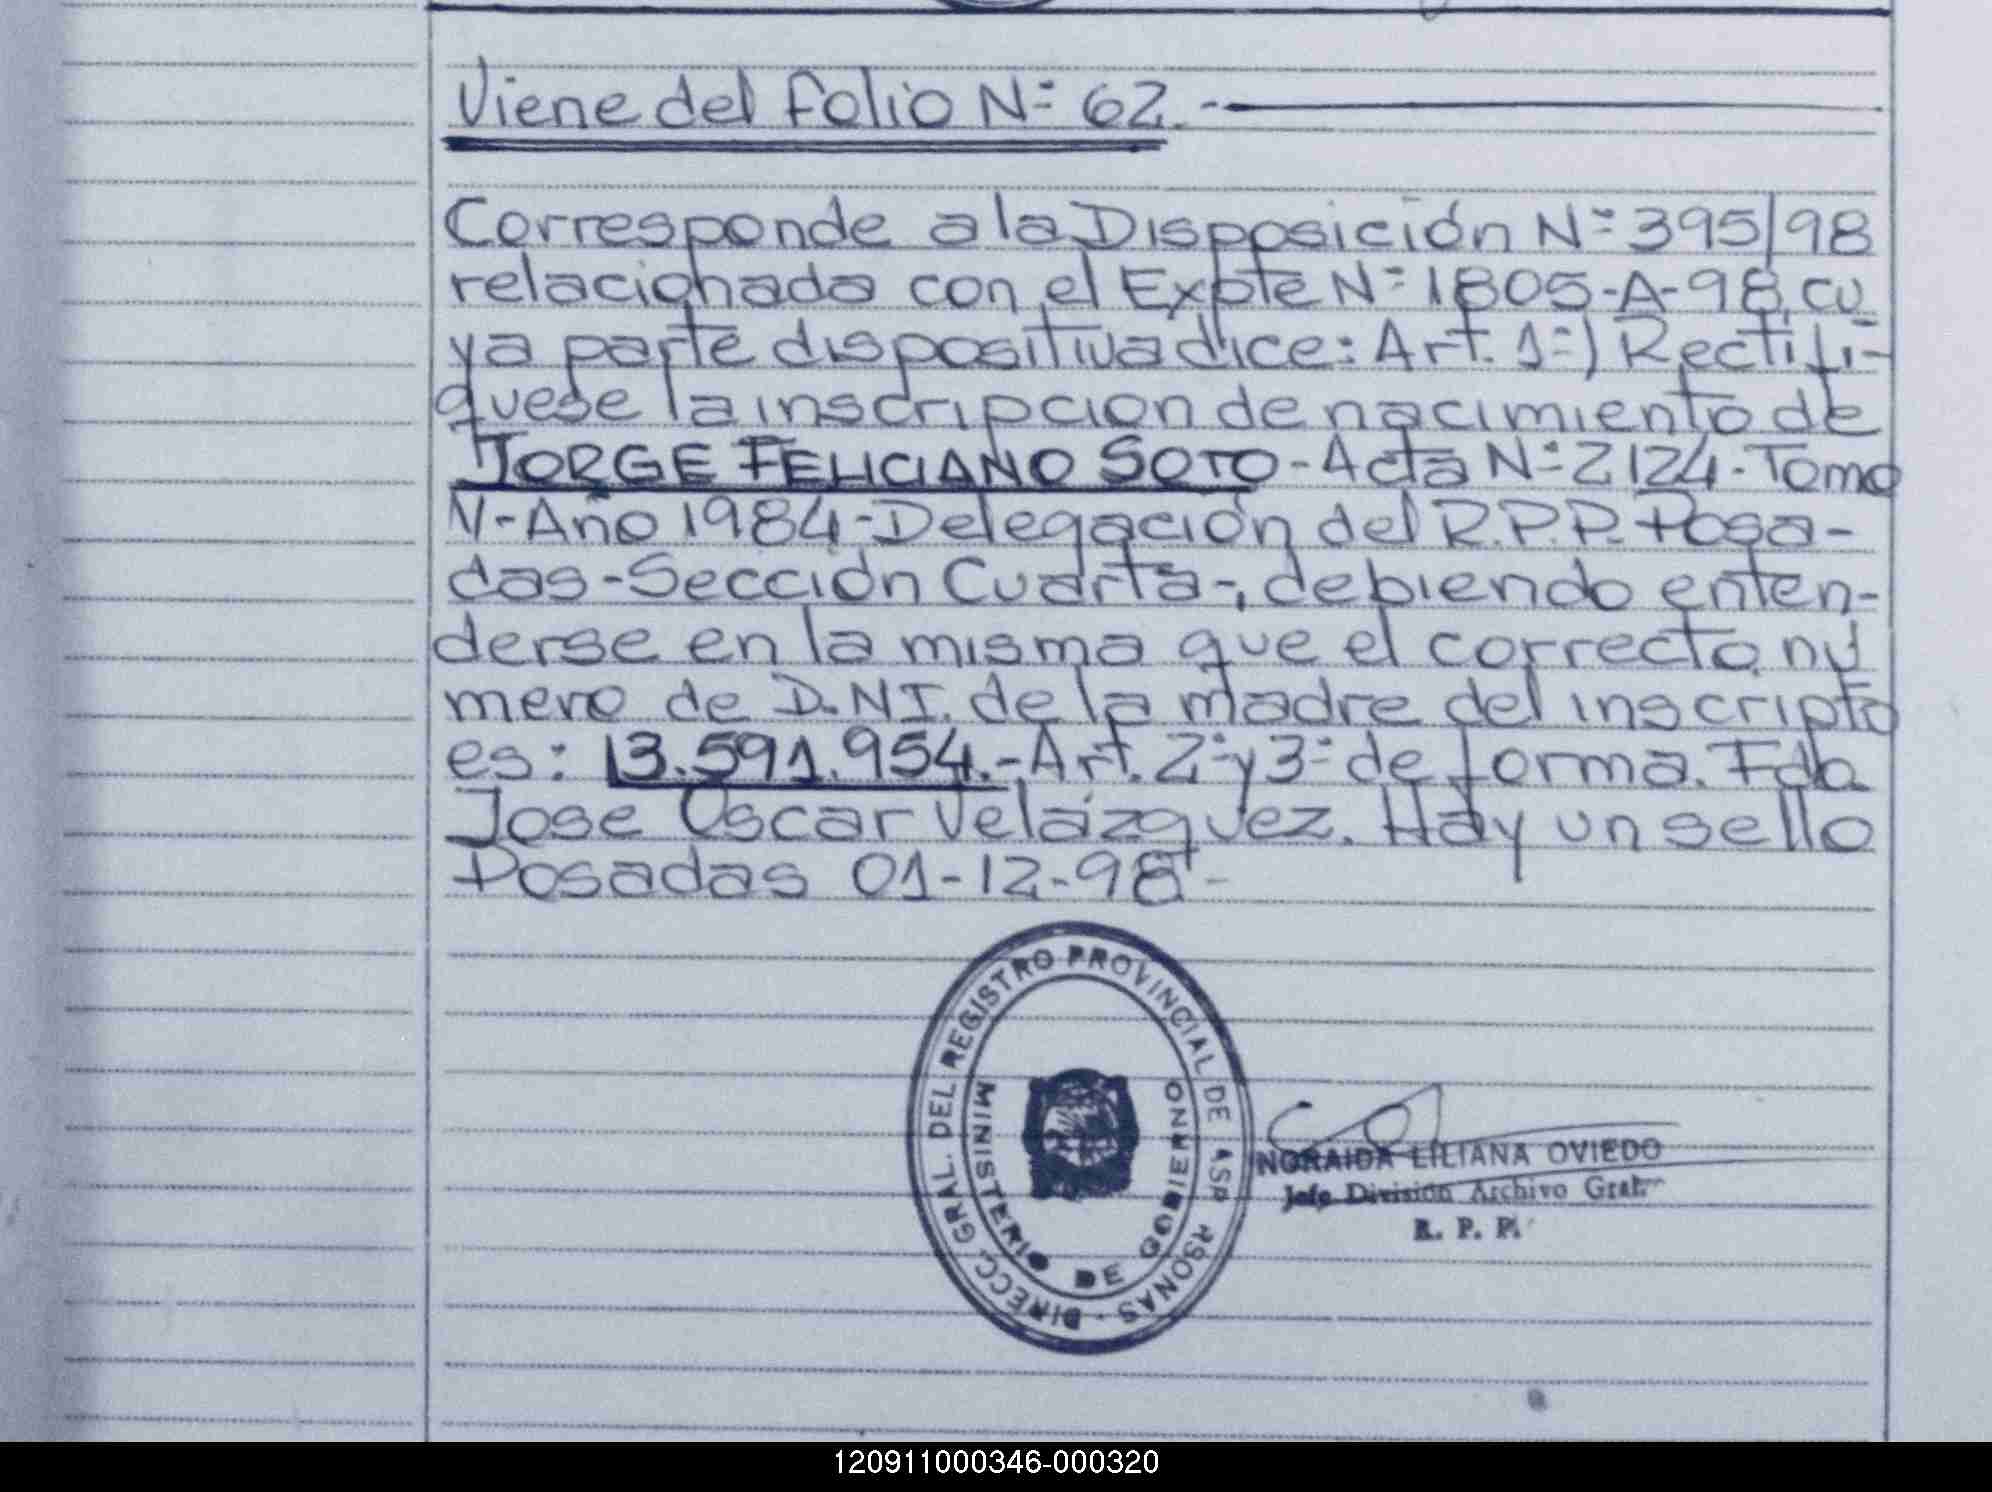 Viene del folio N= 62.-
Corresponde a la Disposición N= 395/98
relacionada con el Expte N= 1805-A-98, cu
ya parte dispositiva dice: Art. 1=) Rectifi-
quese la inscripcion de nacimiento de
JORGE FELICIANO SOTO - Acta N= 2124 - Tomo
IV - Año 1984 - Delegación del R.P.P. Posa-
das - Sección Cuarta -, debiendo enten-
derse en la misma que el correcto nú
mero de D.N.I. de la madre del inscripto
es: 13.591.954.- Art. 2= y 3= de forma. Fdo.
Jose Oscar Velázquez. Hay un sello
Posadas 01-12-98 -
DIRECC. GRAL. DEL REGISTRO PROVINCIAL DE
RSONAS -
MINISTERIO DE GOBIERNO
NORAIDA LILIANA OVIEDO
Jefe División Archivo Gral.
R. P. P.
120911000346-000320